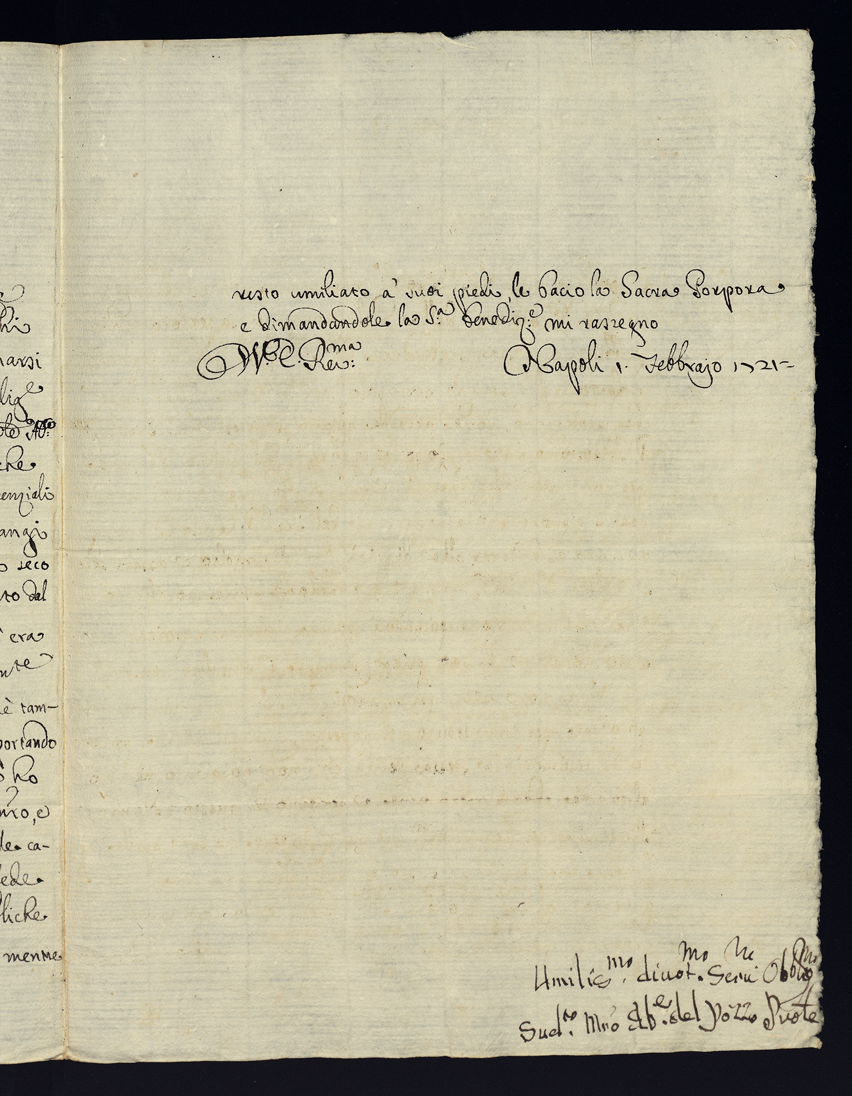 hi
narsi
lig.e
che
enziali
angi
o seco
to del
era
nte
è tam-
portando
ho
nro, e
de ca-
ede
liche
mente
resto umiliato a' suoi piedi, le bacio la Sacra Porpora
e dimandandole la S.ta Benediz.e mi rassegno
Rev:ma Napoli 1. Febbrajo 1721-
Umilis.mo divot.mo Seru.re Obblig.mo
Sud.to Mro Ab.e del Pozzo